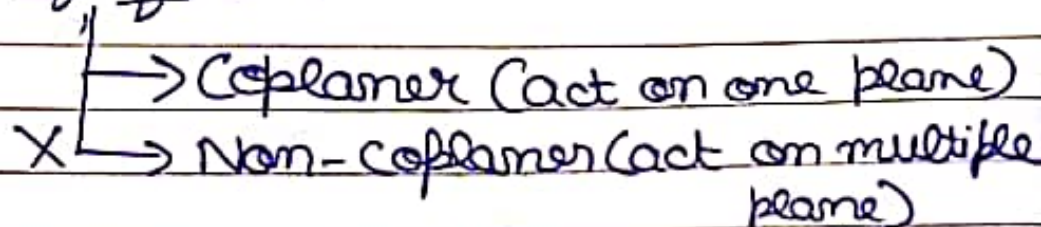 → Coplaner (act on one plane)
X → Non-coplaner (act on multiple
plane)